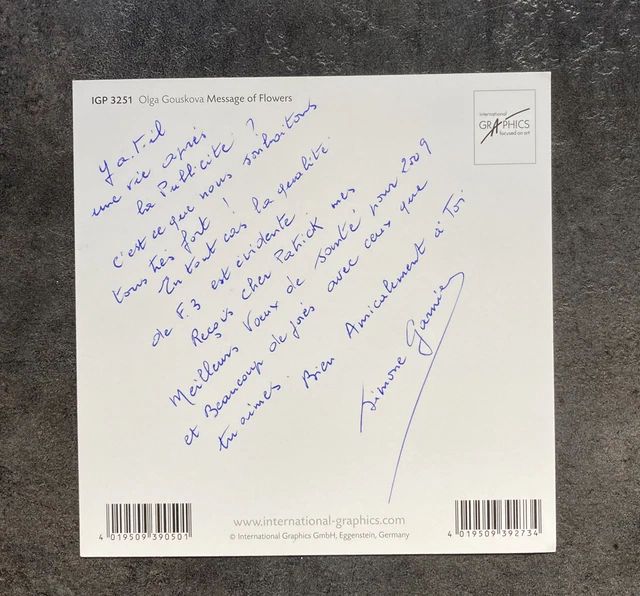 IGP 3251 Olga Gouskova Message of Flowers
international
GRAPHICS
focused on art
Y a.t.il
une vie après
la Publicité ?
c'est ce que nous souhaitons
tous très fort !
En tout cas la qualité
de F.3 est évidente.
Reçois cher Patrick mes
Meilleurs Voeux de santé pour 2009
et Beaucoup de joies avec ceux que
tu aimes. Bien Amicalement à Toi
Simone Garnier
www.international-graphics.com
© International Graphics GmbH, Eggenstein, Germany
4 019509 390501
4 019509 392734